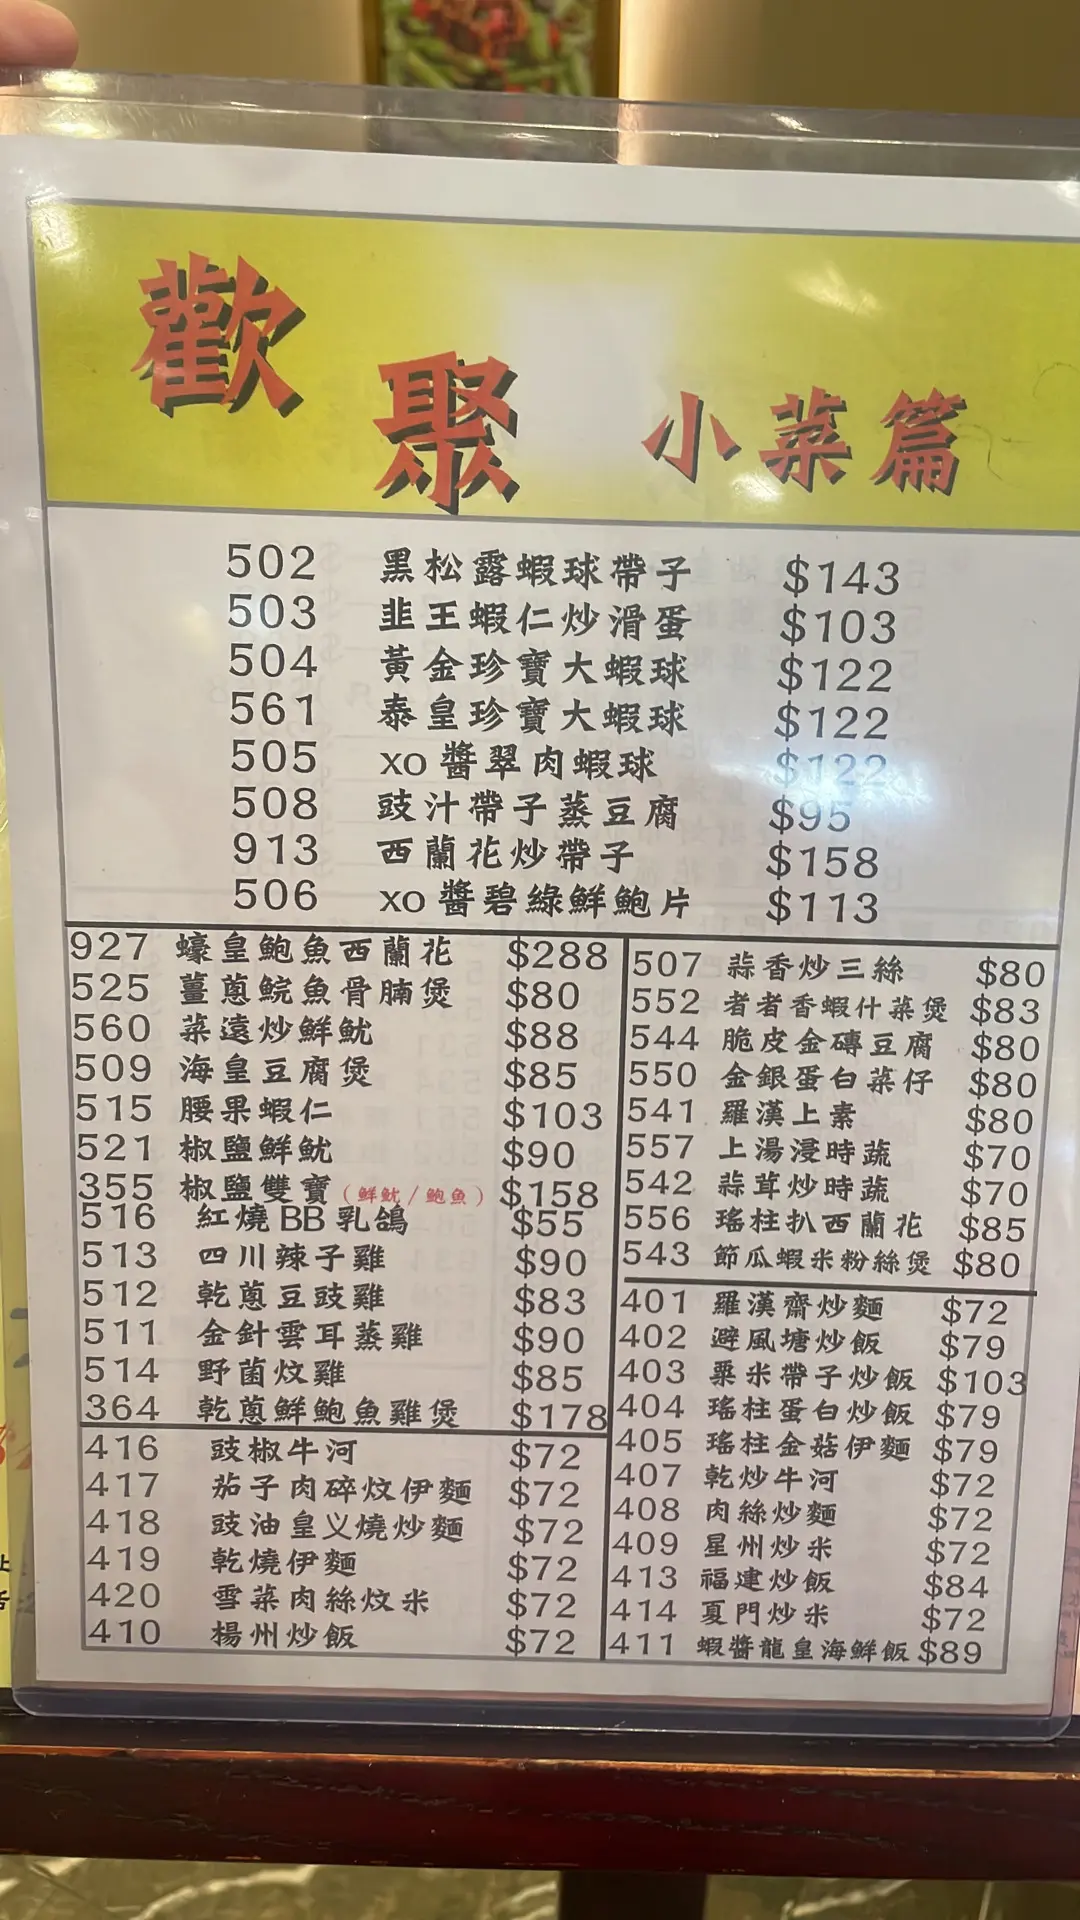 歡聚 小菜篇
502 黑松露蝦球帶子 $143
503 韭王蝦仁炒滑蛋 $103
504 黃金珍寶大蝦球 $122
561 泰皇珍寶大蝦球 $122
505 xo醬翠肉蝦球 $122
508 豉汁帶子蒸豆腐 $95
913 西蘭花炒帶子 $158
506 xo醬碧綠鮮鮑片 $113
927 蠔皇鮑魚西蘭花 $288
525 薑蔥鯇魚骨腩煲 $80
560 菜遠炒鮮魷 $88
509 海皇豆腐煲 $85
515 腰果蝦仁 $103
521 椒鹽鮮魷 $90
355 椒鹽雙寶(鮮魷/鮑魚) $158
516 紅燒BB乳鴿 $55
513 四川辣子雞 $90
512 乾蔥豆豉雞 $83
511 金針雲耳蒸雞 $90
514 野菌炆雞 $85
364 乾蔥鮮鮑魚雞煲 $178
416 豉椒牛河 $72
417 茄子肉碎炆伊麵 $72
418 豉油皇义燒炒麵 $72
419 乾燒伊麵 $72
420 雪菜肉絲炆米 $72
410 楊州炒飯 $72
507 蒜香炒三絲 $80
552 者者香蝦什菜煲 $83
544 脆皮金磚豆腐 $80
550 金銀蛋白菜仔 $80
541 羅漢上素 $80
557 上湯浸時蔬 $70
542 蒜茸炒時蔬 $70
556 瑤柱扒西蘭花 $85
543 節瓜蝦米粉絲煲 $80
401 羅漢齋炒麵 $72
402 避風塘炒飯 $79
403 粟米帶子炒飯 $103
404 瑤柱蛋白炒飯 $79
405 瑤柱金菇伊麵 $79
407 乾炒牛河 $72
408 肉絲炒麵 $72
409 星州炒米 $72
413 福建炒飯 $84
414 夏門炒米 $72
411 蝦醬龍皇海鮮飯 $89